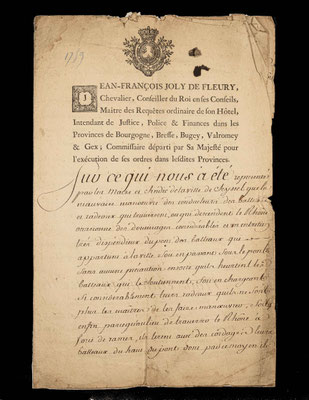 1749
JEAN-FRANÇOIS JOLY DE FLEURY,
Chevalier, Conseiller du Roi en ses Conseils,
Maître des Requêtes ordinaire de son Hôtel,
Intendant de Justice, Police & Finances dans les
Provinces de Bourgogne, Bresse, Bugey, Valromey
& Gex; Commissaire départi par Sa Majesté pour
l'exécution de ses ordres dans lesdites Provinces.
Sur ce qui nous a été representé
par les Maire et Sindic de la ville de Seyssel que la
mauvaise manœuvre des conducteurs des batteaux
et radeaux qui traversent, ou qui descendent le Rhône
occasionne des dommages considerables et un entretien
très dispendieux du pont des batteaux que
appartient à la ville, soit en passant sous le pont
sans aucune precaution, ensorte qu'ils heurtent les
batteaux qui le soutiennent; soit en chargeant
si considerablement leurs radeaux qu'ils ne sont
plus les maitres de les faire manœuvrer; soit
enfin parce qu'au lieu de traverser le Rhône à
force de rames, ils
batteaux du haut du pont dont par ce moyen ils